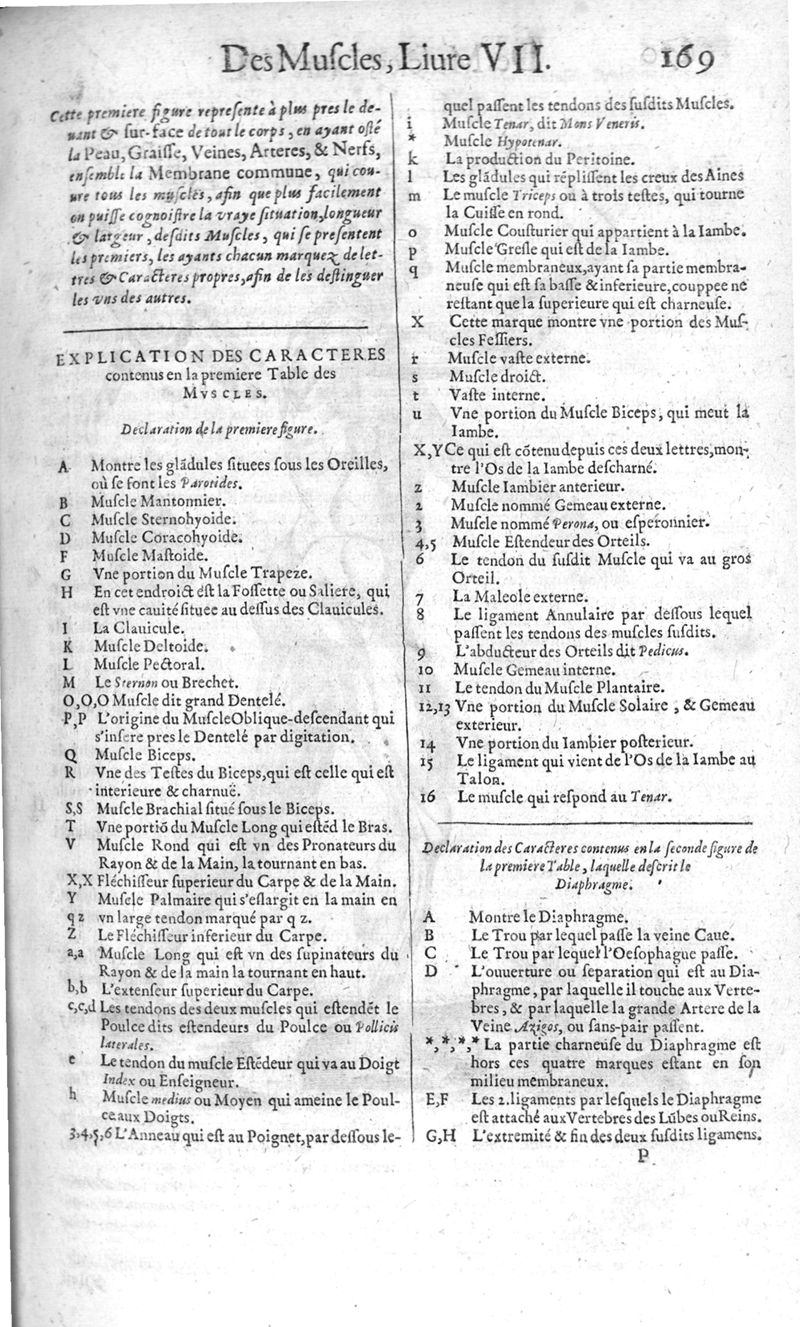 Des Muſcles, Liure VII. 169
Cette premiere figure repreſente à plus pres le de-
uant & ſur-face de tout le corps, en ayant oſté
la Peau, Graiſſe, Veines, Arteres, & Nerfs,
enſemble la Membrane commune, qui cou-
ure tous les muſcles, afin que plus facilement
on puiſſe cognoiſtre la vraye ſituation, longueur
& largeur, deſdits Muſcles, qui ſe preſentent
les premiers, les ayants chacun marquez de let-
tres & Caracteres propres, afin de les deſtinguer
les vns des autres.
EXPLICATION DES CARACTERES
contenus en la premiere Table des
MVSCLES.
Declaration de la premiere figure.
A Montre les glādules ſituees ſous les Oreilles,
où ſe font les Parotides.
B Muſcle Mantonnier.
C Muſcle Sternohyoide.
D Muſcle Coracohyoide.
F Muſcle Maſtoide.
G Vne portion du Muſcle Trapeze.
H En cet endroict eſt la Foſſette ou Saliere, qui
eſt vne cauité ſituee au deſſus des Clauicules.
I La Clauicule.
K Muſcle Deltoide.
L Muſcle Pectoral.
M Le Sternon ou Brechet.
O,O,O Muſcle dit grand Dentelé.
P,P L'origine du Muſcle Oblique-deſcendant qui
s'inſere pres le Dentelé par digitation.
Q Muſcle Biceps.
R Vne des Teſtes du Biceps, qui eſt celle qui eſt
interieure & charnuë.
S,S Muſcle Brachial ſitué ſous le Biceps.
T Vne portiō du Muſcle Long qui eſtēd le Bras.
V Muſcle Rond qui eſt vn des Pronateurs du
Rayon & de la Main, la tournant en bas.
X,X Fléchiſſeur ſuperieur du Carpe & de la Main.
Y Muſcle Palmaire qui s'eſlargit en la main en
q z vn large tendon marqué par q z.
Z Le Fléchiſſeur inferieur du Carpe.
a,a Muſcle Long qui eſt vn des ſupinateurs du
Rayon & de la main la tournant en haut.
b,b L'extenſeur ſuperieur du Carpe.
c,c,d Les tendons des deux muſcles qui eſtendēt le
Poulce dits eſtendeurs du Poulce ou Pollicis
laterales.
e Le tendon du muſcle Eſtēdeur qui va au Doigt
Index ou Enſeigneur.
h Muſcle medius ou Moyen qui ameine le Poul-
ce aux Doigts.
3,4,5,6 L'Anneau qui eſt au Poignet, par deſſous le-
quel paſſent les tendons des ſuſdits Muſcles.
i Muſcle Tenar, dit Mons Veneris.
* Muſcle Hypotenar.
k La production du Peritoine.
l Les glādules qui répliſſent les creux des Aines
m Le muſcle Triceps ou à trois teſtes, qui tourne
la Cuiſſe en rond.
o Muſcle Couſturier qui appartient à la Iambe.
p Muſcle Greſle qui eſt de la Iambe.
q Muſcle membraneux, ayant ſa partie membra-
neuſe qui eſt ſa baſſe & inferieure, couppee ne
reſtant que la ſuperieure qui eſt charneuſe.
X Cette marque montre vne portion des Muſ-
cles Feſſiers.
r Muſcle vaſte externe.
s Muſcle droict.
t Vaſte interne.
u Vne portion du Muſcle Biceps, qui meut la
Iambe.
X,Y Ce qui eſt cōtenu depuis ces deux lettres, mon-
tre l'Os de la Iambe deſcharné.
z Muſcle Iambier anterieur.
2 Muſcle nommé Gemeau externe.
3 Muſcle nommé Perona, ou eſperonnier.
4,5 Muſcle Eſtendeur des Orteils.
6 Le tendon du ſuſdit Muſcle qui va au gros
Orteil.
7 La Maleole externe.
8 Le ligament Annulaire par deſſous lequel
paſſent les tendons des muſcles ſuſdits.
9 L'abducteur des Orteils dit Pedicus.
10 Muſcle Gemeau interne.
11 Le tendon du Muſcle Plantaire.
12,13 Vne portion du Muſcle Solaire, & Gemeau
exterieur.
14 Vne portion du Iambier poſterieur.
15 Le ligament qui vient de l'Os de la Iambe au
Talon.
16 Le muſcle qui reſpond au Tenar.
Declaration des Caracteres contenus en la ſeconde figure de
la premiere Table, laquelle deſcrit le
Diaphragme.
A Montre le Diaphragme.
B Le Trou par lequel paſſe la veine Caue.
C Le Trou par lequel l'Oeſophague paſſe.
D L'ouuerture ou ſeparation qui eſt au Dia-
phragme, par laquelle il touche aux Verte-
bres, & par laquelle la grande Artere de la
Veine Azigos, ou ſans-pair paſſent.
*,*,*,* La partie charneuſe du Diaphragme eſt
hors ces quatre marques eſtant en ſon
milieu membraneux.
E,F Les 2. ligaments par leſquels le Diaphragme
eſt attaché aux Vertebres des Lūbes ou Reins.
G,H L'extremité & fin des deux ſuſdits ligamens.
P